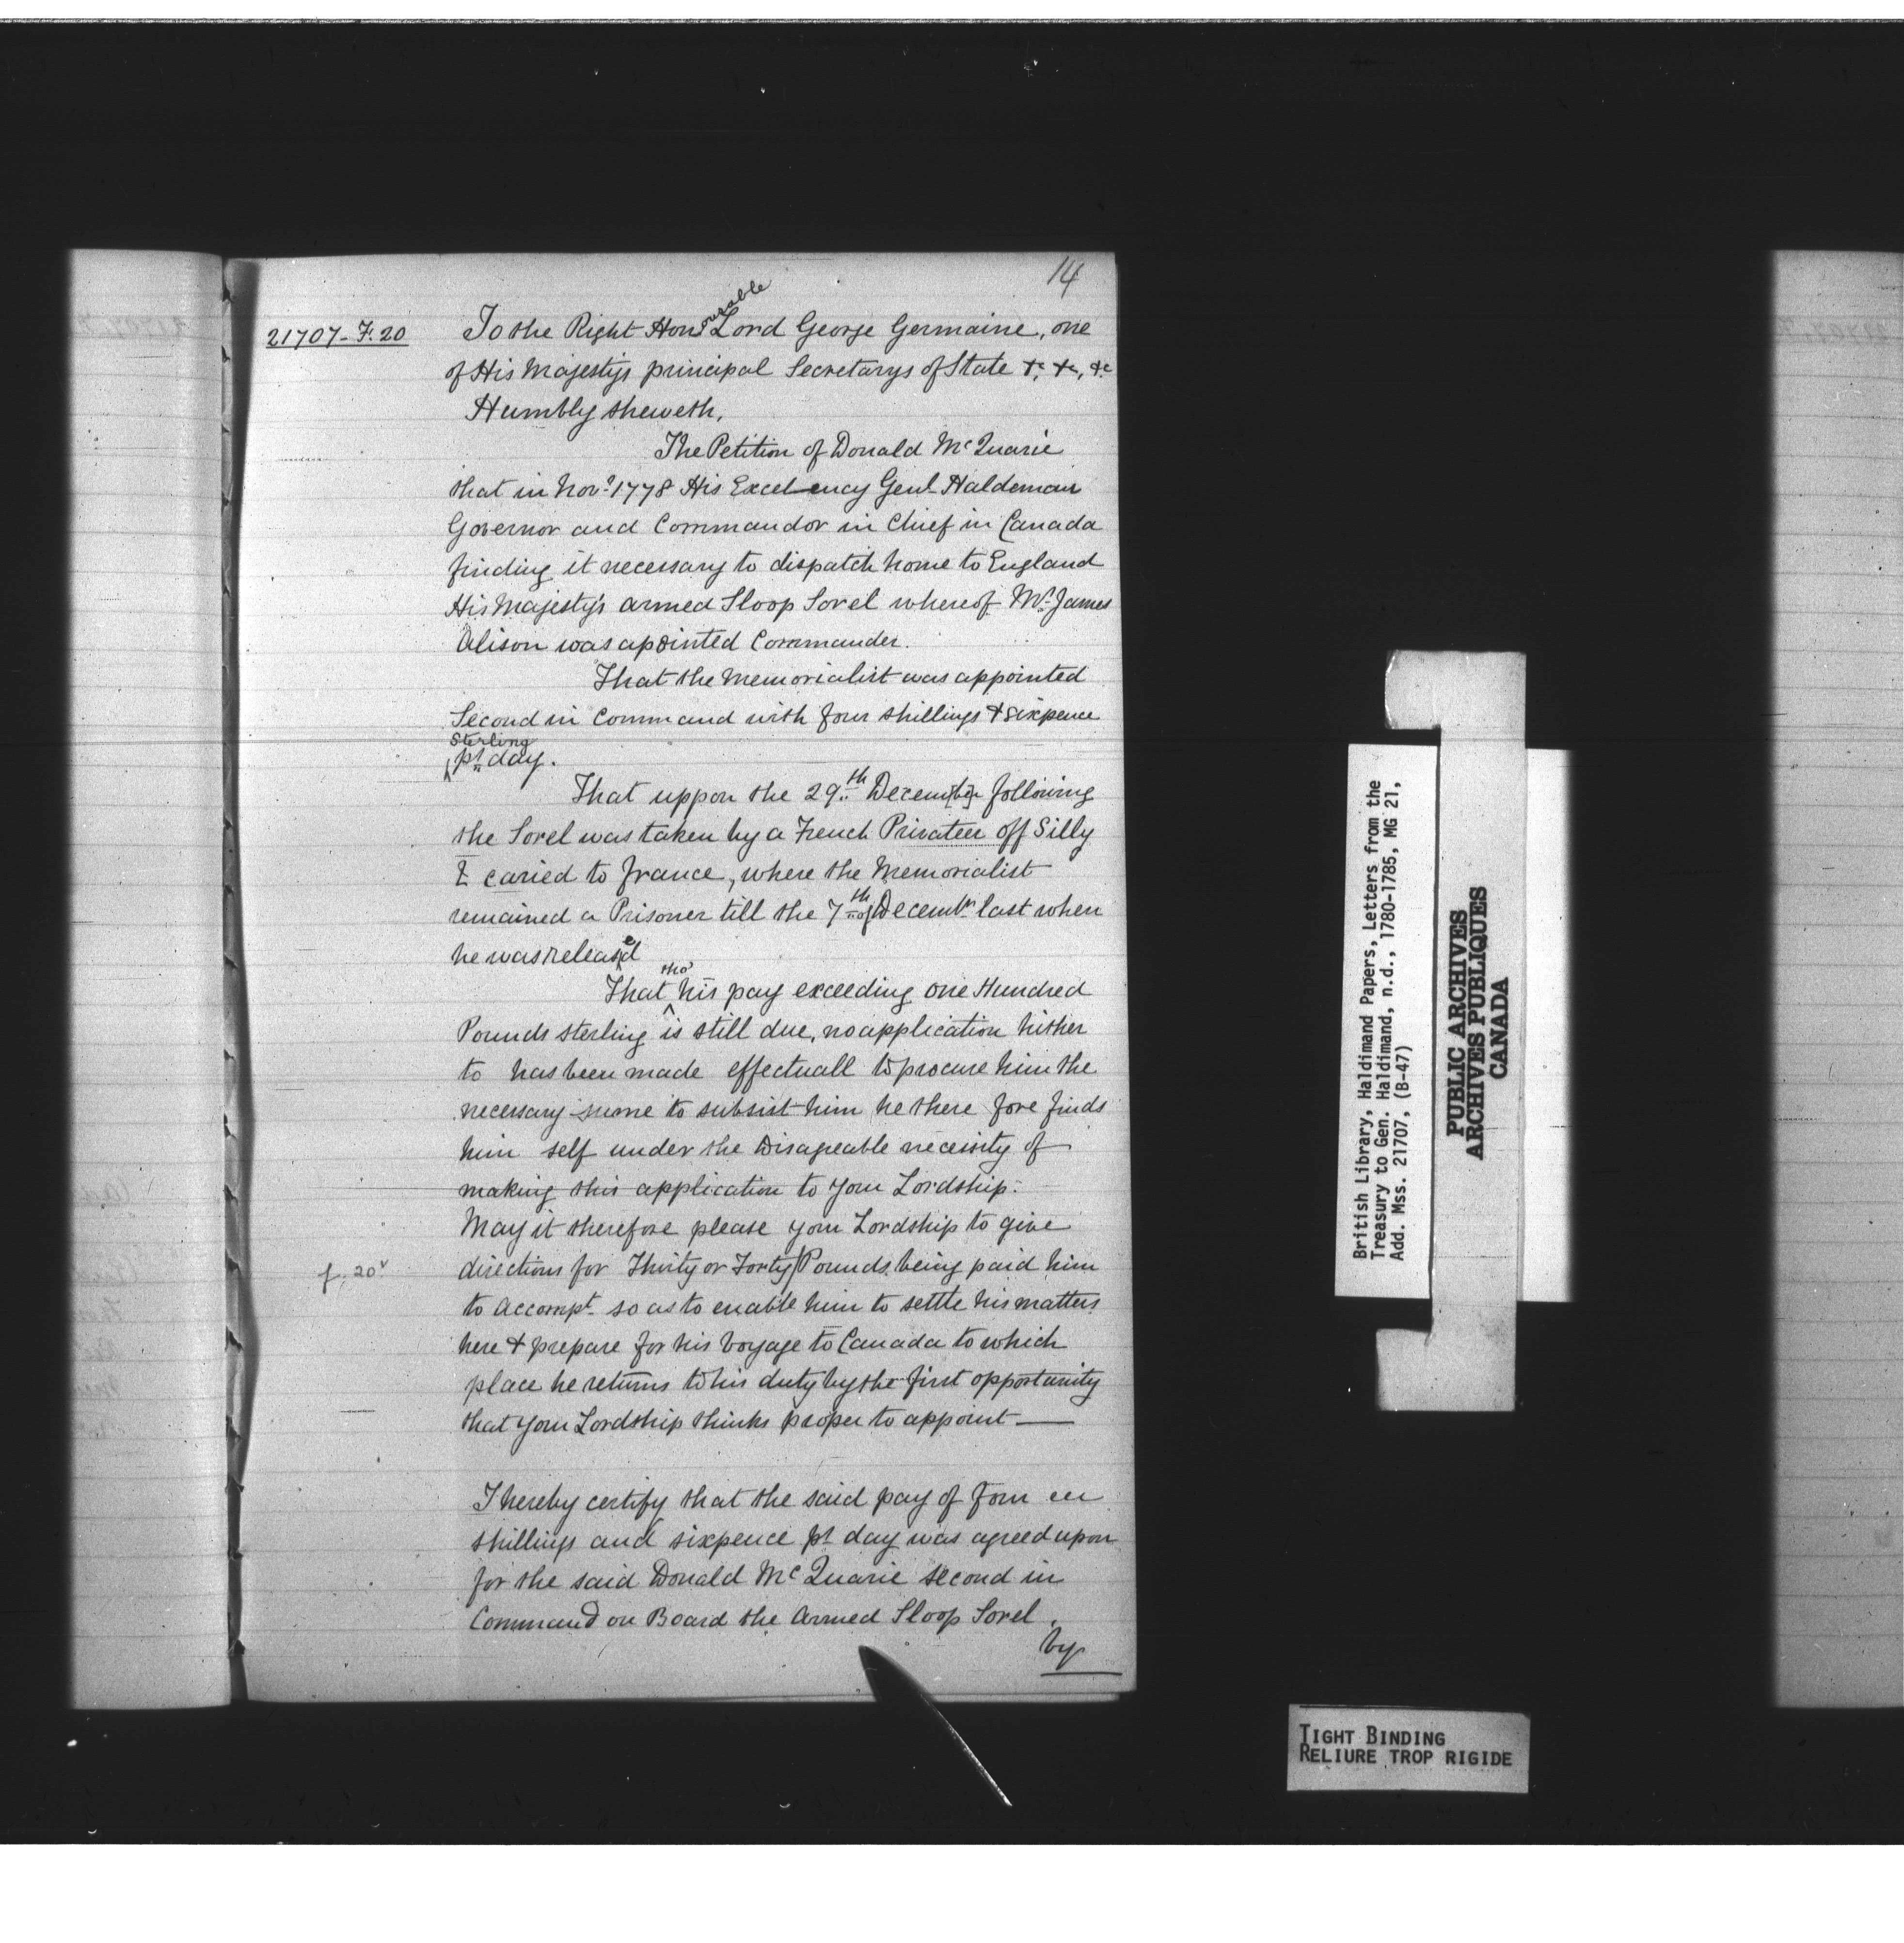 14
21707-F.20
To the Right Honourable Lord George Germaine, one
of His Majestys principal Secretarys of State &c, &c, &c
Humbly sheweth,
The Petition of Donald McQuarie
that in Novr 1778 His Excelency Genl Haldeman
Governor and Commandor in Chief in Canada
finding it necessary to dispatch home to England
His Majesty's armed Sloop Sorel whereof Mr James
Alison was apointed Commander.
That the Memorialist was appointed
Second in Command with four shillings & sixpence
Sterling
pr day.
That uppon the 29th December following
the Sorel was taken by a French Privateer off Silly
& caried to france, where the Memorialist
remained a Prisoner till the 7th of Decembr last when
he was released
That tho' his pay exceeding one Hundred
Pounds sterling is still due, no application hither
to has been made effectuall to procure him the
necessary sume to subsist him he there fore finds
him self under the Disagreable necessity of
making this application to your Lordship.
May it therefore please your Lordship to give
f. 20v
directions for Thirty or Forty/Pounds being paid him
to accompt so as to enable him to settle his matters
here & prepare for his Voyage to Canada to which
place he returns to his duty by the first opportunity
that your Lordship thinks proper to appoint —
I hereby certify that the said pay of four
shillings and sixpence pr day was agreed upon
for the said Donald McQuarie second in
Command on Board the Armed Sloop Sorel,
by
British Library, Haldimand Papers, Letters from the
Treasury to Gen. Haldimand, n.d., 1780-1785, MG 21,
Add. Mss. 21707, (B-47)
PUBLIC ARCHIVES
ARCHIVES PUBLIQUES
CANADA
TIGHT BINDING
RELIURE TROP RIGIDE